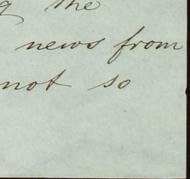 the
news from
not so